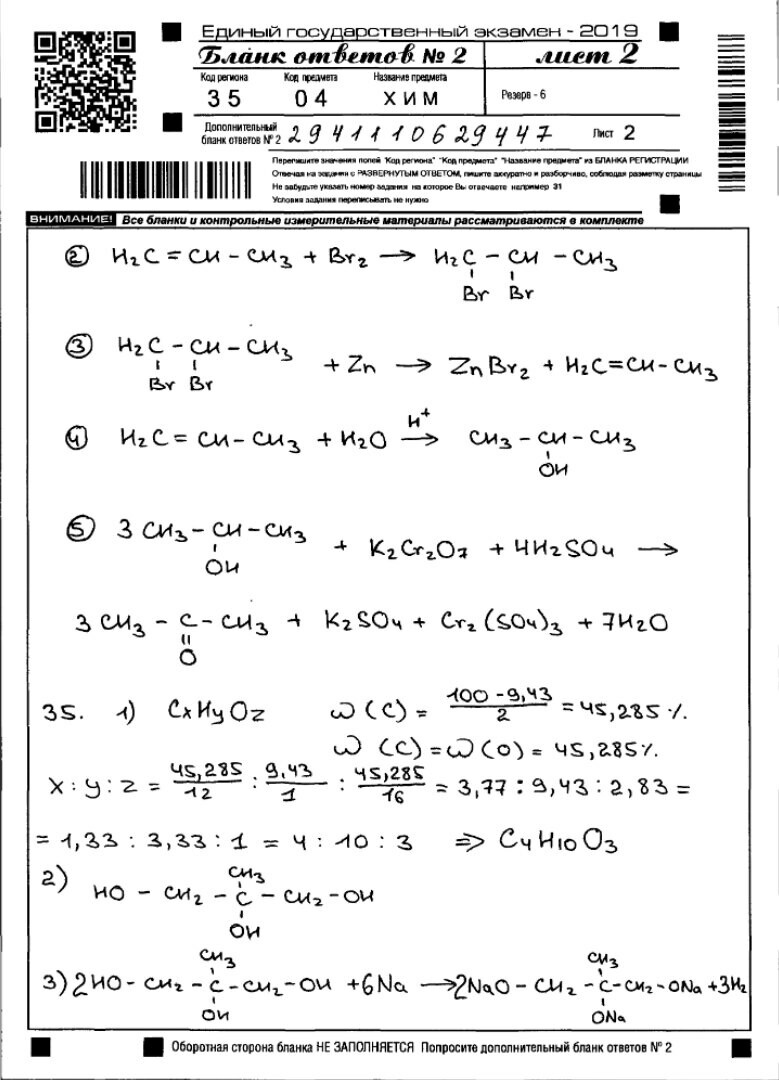 Единый государственный экзамен - 2019
Бланк ответов № 2 лист 2
Код региона Код предмета Название предмета
35 04 ХИМ Резерв - 6
Дополнительный бланк ответов № 2 2941110629447 Лист 2
Перепишите значения полей "Код региона" "Код предмета" "Название предмета" из БЛАНКА РЕГИСТРАЦИИ
Отвечая на задания с РАЗВЕРНУТЫМ ОТВЕТОМ, пишите аккуратно и разборчиво, соблюдая разметку страницы
Не забудьте указать номер задания на которое Вы отвечаете например 31
Условия задания переписывать не нужно
ВНИМАНИЕ! Все бланки и контрольные измерительные материалы рассматриваются в комплекте
② H₂C = CH – CH₃ + Br₂ → H₂C – CH – CH₃
Br Br
③ H₂C – CH – CH₃ + Zn → ZnBr₂ + H₂C=CH–CH₃
Br Br
④ H₂C = CH–CH₃ + H₂O →(H⁺) CH₃ – CH – CH₃
OH
⑤ 3 CH₃ – CH – CH₃ + K₂Cr₂O₇ + 4H₂SO₄ →
OH
3 CH₃ – C – CH₃ + K₂SO₄ + Cr₂(SO₄)₃ + 7H₂O
O
35. 1) CxHyOz ω(C) = (100 - 9,43)/2 = 45,285 %.
ω (C) = ω(O) = 45,285%.
x : y : z = 45,285/12 : 9,43/1 : 45,285/16 = 3,77 : 9,43 : 2,83 =
= 1,33 : 3,33 : 1 = 4 : 10 : 3 ⇒ C₄H₁₀O₃
2) CH₃
HO – CH₂ – C – CH₂ – OH
OH
CH₃ CH₃
3) 2HO – CH₂ – C – CH₂ – OH + 6Na → 2NaO – CH₂ – C – CH₂ – ONa + 3H₂
OH ONa
Оборотная сторона бланка НЕ ЗАПОЛНЯЕТСЯ Попросите дополнительный бланк ответов № 2